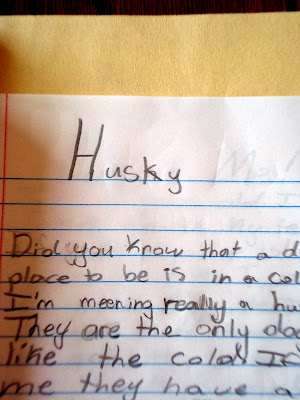 Husky
Did you know that a d
place to be is in a col
I'm meening really a hu
They are the only
like the cold. If
me they have a